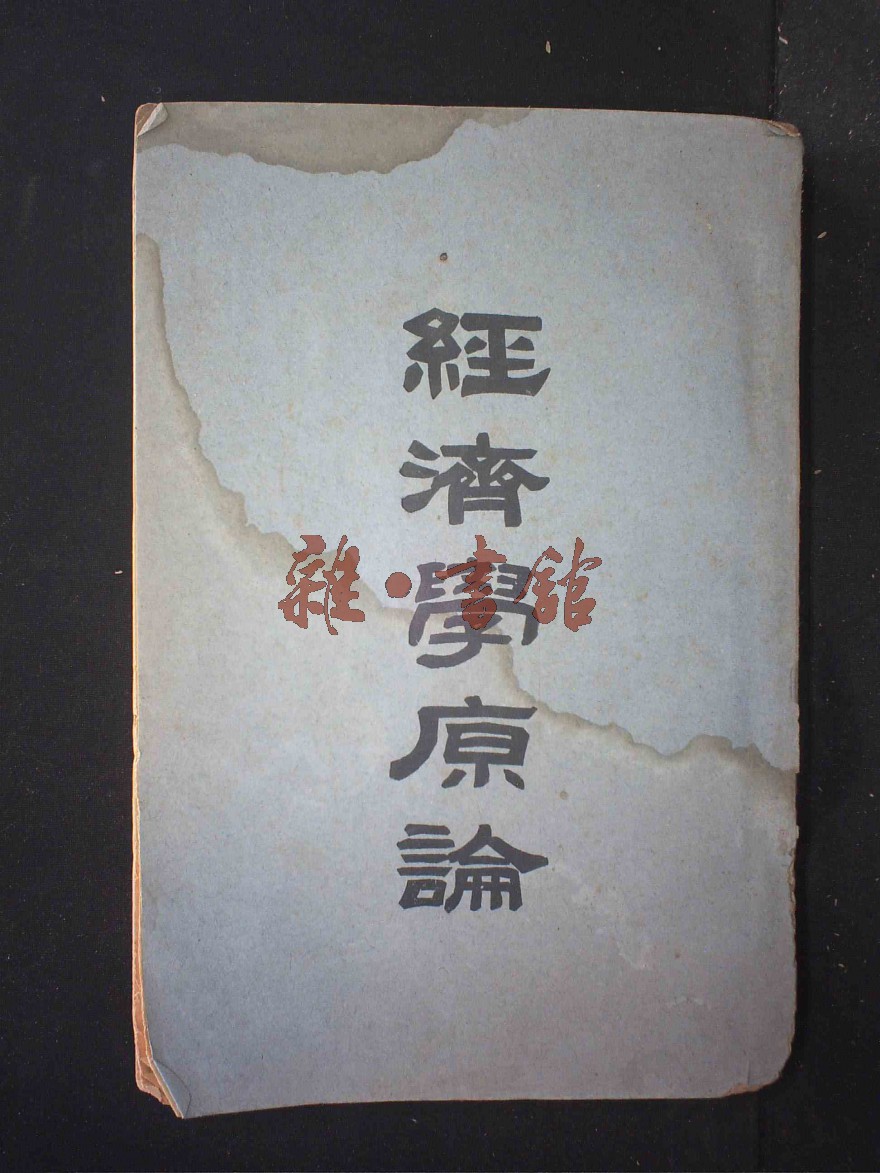 經濟學原論
雜·書館